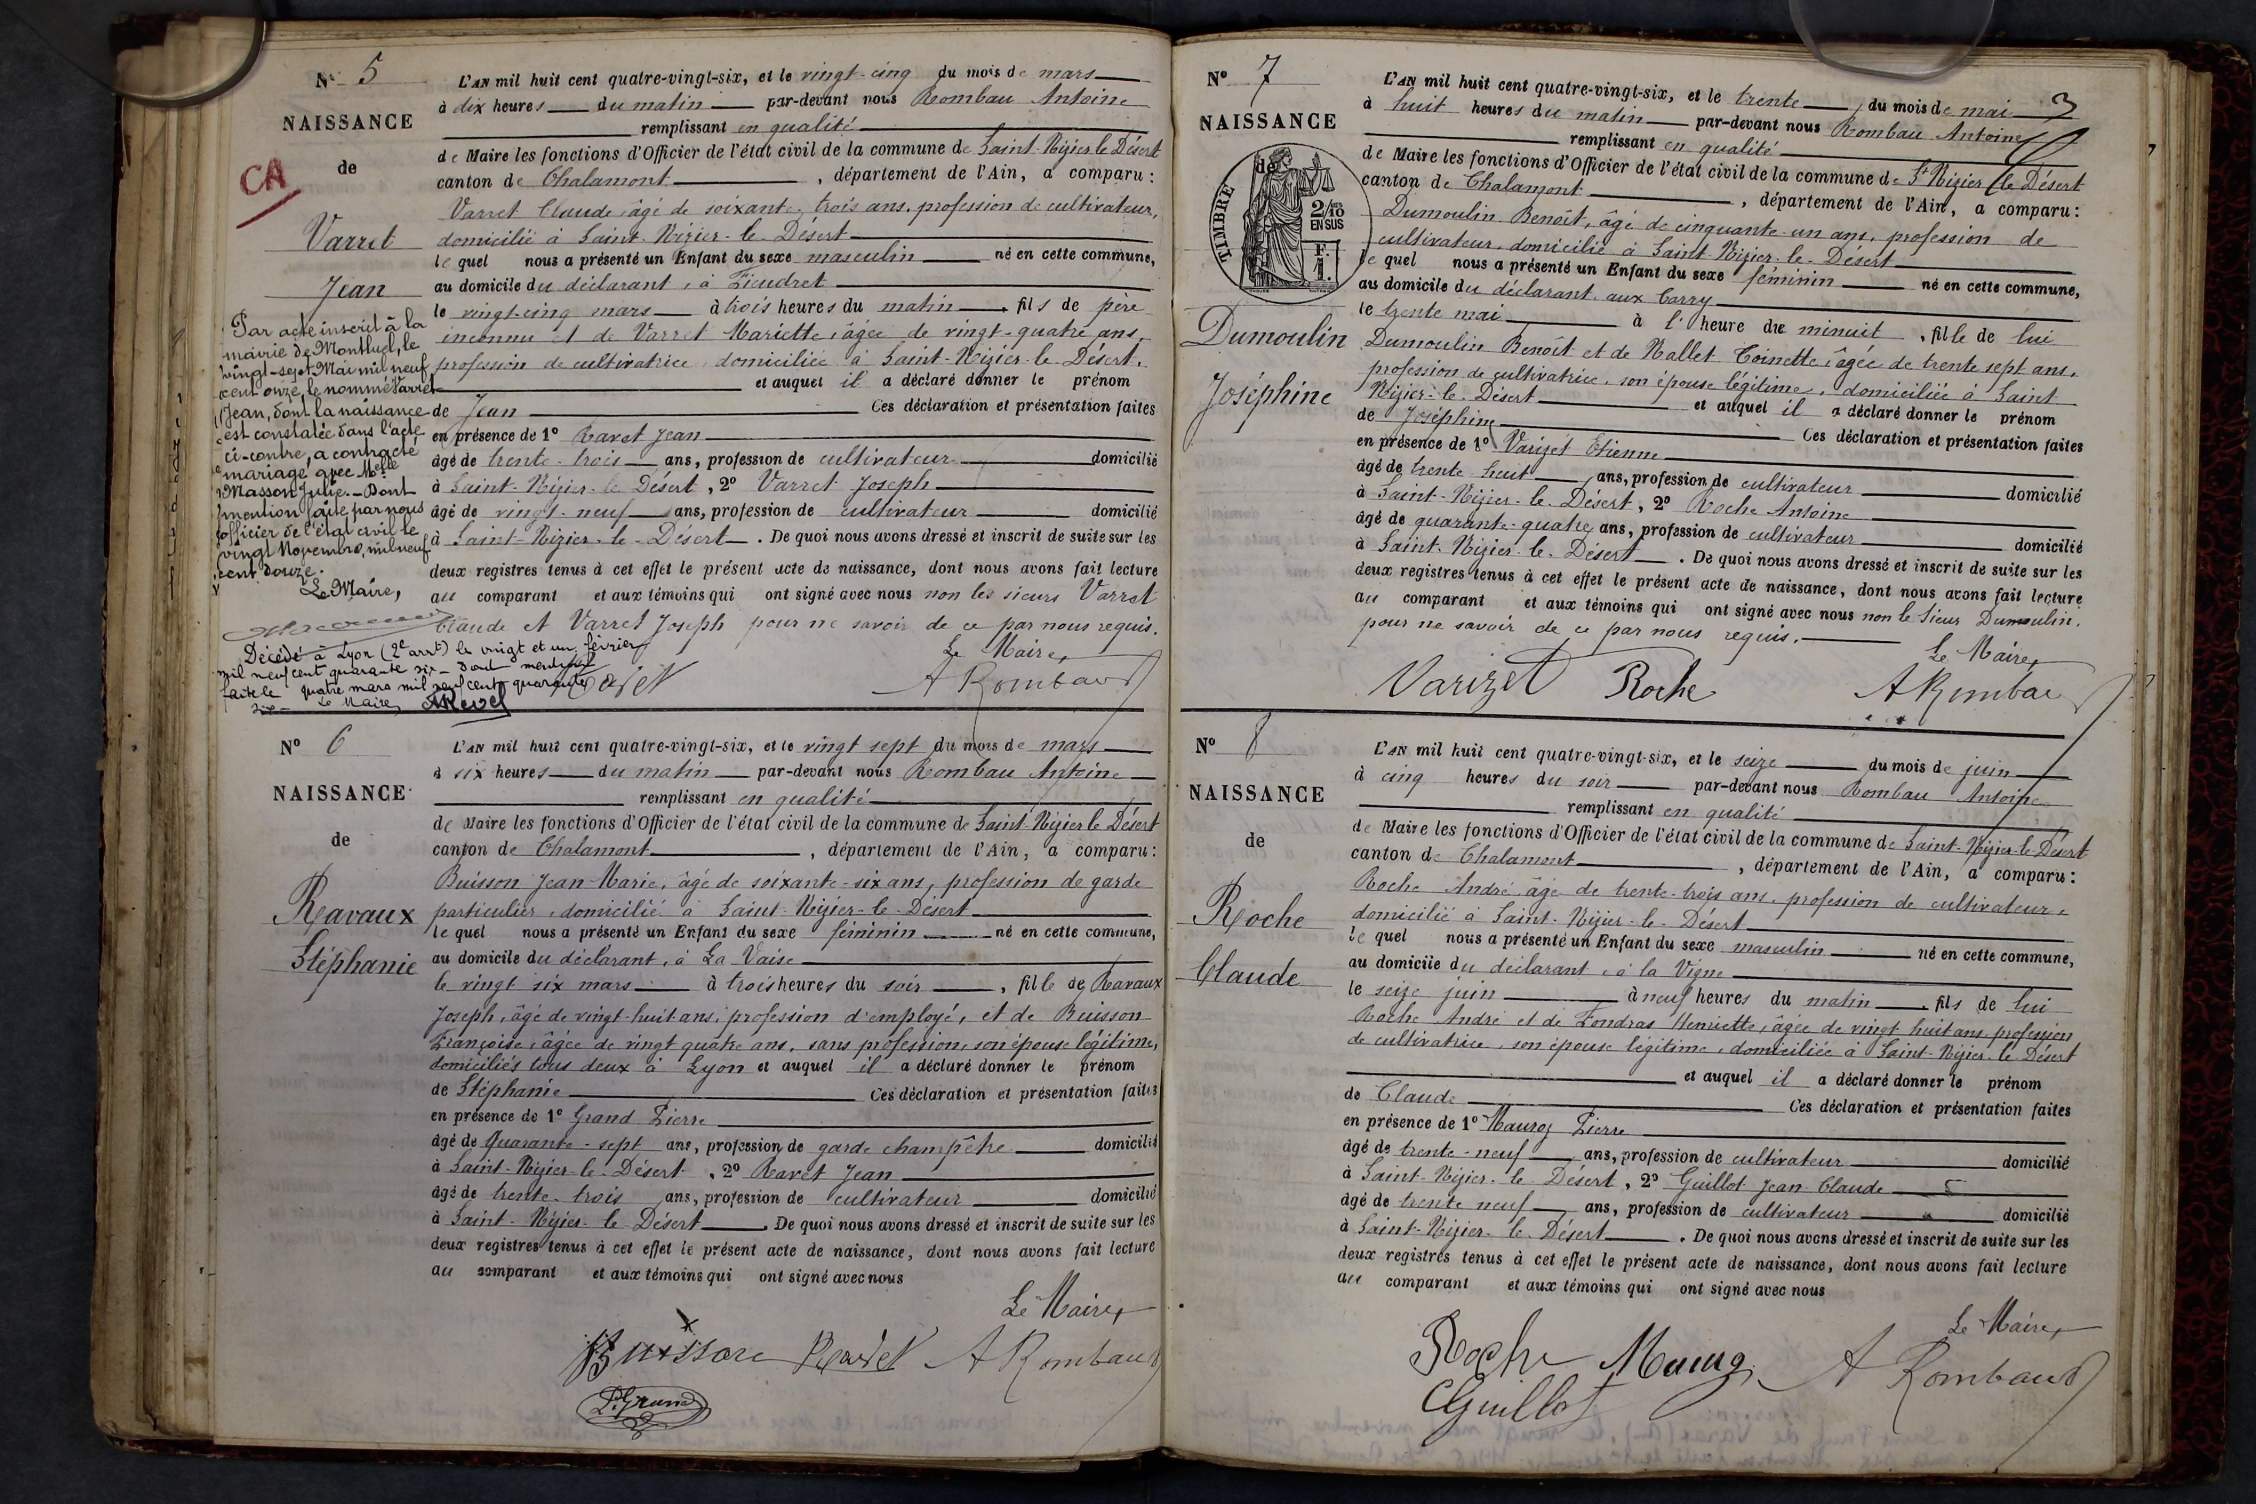 N° 5
NAISSANCE
de
CA
Varret
Jean
Par acte inscrit à la
mairie de Montluel, le
vingt-sept Mai mil neuf
cent onze, le nommé Varret
Jean, dont la naissance
est constatée dans l'acte
ci-contre, a contracté
mariage avec Melle
Masson Julie. - Dont
mention faite par nous
officier de l'état civil le
vingt Novembre, mil neuf
cent douze.
Le Maire,
Décédé à Lyon (2e arrt) le vingt et un février
mil neuf cent quarante six - dont mention
faite le quatre mars mil neuf cent quarante
six - Le Maire, ARevel
L'AN mil huit cent quatre-vingt-six, et le vingt-cinq du mois de mars
à dix heures du matin par-devant nous Rombau Antoine
remplissant en qualité
de Maire les fonctions d'Officier de l'état civil de la commune de Saint-Nizier le Désert
canton de Chalamont, département de l'Ain, a comparu :
Varret Claude, âgé de soixante-trois ans, profession de cultivateur,
domicilié à Saint-Nizier-le-Désert
le quel nous a présenté un Enfant du sexe masculin né en cette commune,
au domicile du déclarant, à Fieudret
le vingt-cinq mars à trois heures du matin, fils de père
inconnu et de Varret Mariette, âgée de vingt-quatre ans,
profession de cultivatrice, domiciliée à Saint-Nizier-le Désert,
et auquel il a déclaré donner le prénom
de Jean Ces déclaration et présentation faites
en présence de 1° Ravet Jean
âgé de trente-trois ans, profession de cultivateur domicilié
à Saint-Nizier-le Désert, 2° Varret Joseph
âgé de vingt-neuf ans, profession de cultivateur domicilié
à Saint-Nizier-le-Désert. De quoi nous avons dressé et inscrit de suite sur les
deux registres tenus à cet effet le présent acte de naissance, dont nous avons fait lecture
au comparant et aux témoins qui ont signé avec nous non les sieurs Varret
Claude et Varret Joseph pour ne savoir de ce par nous requis.
Le Maire,
Ravet A Rombaud
N° 6
NAISSANCE
de
Ravaux
Stéphanie
L'AN mil huit cent quatre-vingt-six, et le vingt sept du mois de mars
à six heures du matin par-devant nous Rombau Antoine
remplissant en qualité
de Maire les fonctions d'Officier de l'état civil de la commune de Saint-Nizier le Désert
canton de Chalamont, département de l'Ain, a comparu :
Buisson Jean-Marie, âgé de soixante-six ans, profession de garde
particulier, domicilié à Saint-Nizier-le-Désert
le quel nous a présenté un Enfant du sexe féminin né en cette commune,
au domicile du déclarant, à La Vaise
le vingt six mars à trois heures du soir, fille de Ravaux
Joseph, âgé de vingt-huit ans, profession d'employé, et de Buisson
Françoise, âgée de vingt quatre ans, sans profession, son épouse légitime,
domiciliés tous deux à Lyon et auquel il a déclaré donner le prénom
de Stéphanie Ces déclaration et présentation faites
en présence de 1° Grand Pierre
âgé de quarante-sept ans, profession de garde champêtre domicilié
à Saint-Nizier-le-Désert, 2° Ravet Jean
âgé de trente-trois ans, profession de cultivateur domicilié
à Saint-Nizier-le Désert. De quoi nous avons dressé et inscrit de suite sur les
deux registres tenus à cet effet le présent acte de naissance, dont nous avons fait lecture
au comparant et aux témoins qui ont signé avec nous
Le Maire,
Buisson Ravet A Rombaud
P. Grand
N° 7
NAISSANCE
de
TIMBRE
2/10
EN SUS
F.
1.
Dumoulin
Joséphine
L'AN mil huit cent quatre-vingt-six, et le trente du mois de mai 3
à huit heures du matin par-devant nous Rombau Antoine
remplissant en qualité
de Maire les fonctions d'Officier de l'état civil de la commune de St Nizier le Désert
canton de Chalamont, département de l'Ain, a comparu :
Dumoulin Benoît, âgé de cinquante-un ans, profession de
cultivateur, domicilié à Saint-Nizier-le-Désert
le quel nous a présenté un Enfant du sexe féminin né en cette commune,
au domicile du déclarant, aux Carry
le trente mai à l'heure de minuit, fille de lui
Dumoulin Benoît et de Mallet Toinette, âgée de trente sept ans,
profession de cultivatrice, son épouse légitime, domiciliée à Saint
Nizier-le-Désert et auquel il a déclaré donner le prénom
de Joséphine Ces déclaration et présentation faites
en présence de 1° Varizet Etienne
âgé de trente huit ans, profession de cultivateur domicilié
à Saint-Nizier-le-Désert, 2° Roche Antoine
âgé de quarante-quatre ans, profession de cultivateur domicilié
à Saint-Nizier-le-Désert. De quoi nous avons dressé et inscrit de suite sur les
deux registres tenus à cet effet le présent acte de naissance, dont nous avons fait lecture
au comparant et aux témoins qui ont signé avec nous non le Sieur Dumoulin,
pour ne savoir de ce par nous requis.
Le Maire,
Varizet Roche A Rombau
N° 8
NAISSANCE
de
Roche
Claude
L'AN mil huit cent quatre-vingt-six, et le seize du mois de juin
à cinq heures du soir par-devant nous Rombau Antoine
remplissant en qualité
de Maire les fonctions d'Officier de l'état civil de la commune de Saint-Nizier-le-Désert
canton de Chalamont, département de l'Ain, a comparu :
Roche André, âgé de trente-trois ans, profession de cultivateur,
domicilié à Saint-Nizier-le-Désert
le quel nous a présenté un Enfant du sexe masculin né en cette commune,
au domicile du déclarant, à la Vigne
le seize juin à neuf heures du matin, fils de lui
Roche André et de Fondras Henriette, âgée de vingt huit ans, profession
de cultivatrice, son épouse légitime, domiciliée à Saint-Nizier-le Désert
et auquel il a déclaré donner le prénom
de Claude Ces déclaration et présentation faites
en présence de 1° Mauroz Pierre
âgé de trente-neuf ans, profession de cultivateur domicilié
à Saint-Nizier-le Désert, 2° Guillot Jean-Claude
âgé de trente neuf ans, profession de cultivateur domicilié
à Saint-Nizier-le Désert. De quoi nous avons dressé et inscrit de suite sur les
deux registres tenus à cet effet le présent acte de naissance, dont nous avons fait lecture
au comparant et aux témoins qui ont signé avec nous
Le Maire,
Roche A Rombaud
CGuillot